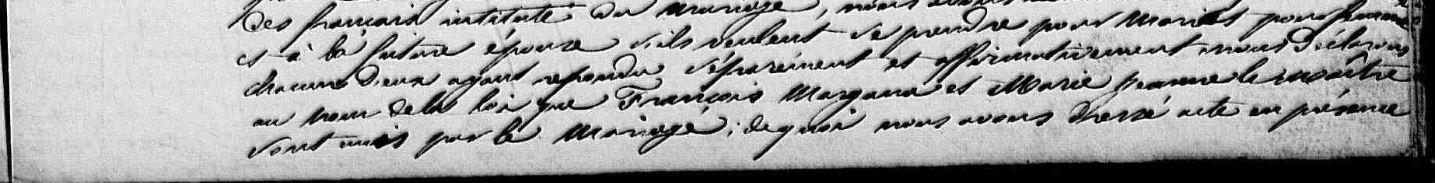 des français intitulé du mariage, nous avons
et à la future épouse s'ils veulent se prendre pour Maris pour femme
chacun d'eux ayant repondu séparément et affirmativement nous Déclarons
au nom de la loi que François Margana et Marie Jeanne le maître
sont unis par le Mariage; de quoi nous avons dressé acte en présence